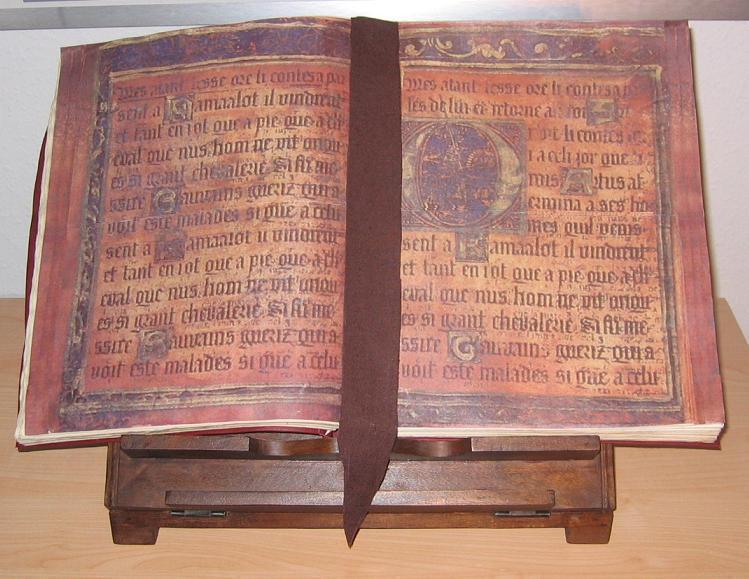 Mes atant lesse ore li contes a par
sent a Kamaalot il vindrent
et tant en iot que a pie que a ch
eval que nus hom ne vit onqu
es si grant chevalerie Si fu me
ssire Gauvains gueriz qui a
voit este malades si que a celui
sent a Kamaalot il vindrent
et tant en iot que a pie que a ch
eval que nus hom ne vit onqu
es si grant chevalerie Si fu me
ssire Gauvains gueriz qui a
voit este malades si que a celui
Mes atant lesse ore li contes a par
les de lui et retorne a
li contes
i a celi jor que
mes Artus
ermina a ses ho
mes qui
sent a Kamaalot il vindrent
et tant en iot que a pie que a ch
eval que nus hom ne vit onqu
es si grant chevalerie Si fu me
ssire Gauvains gueriz qui a
voit este malades si que a celui